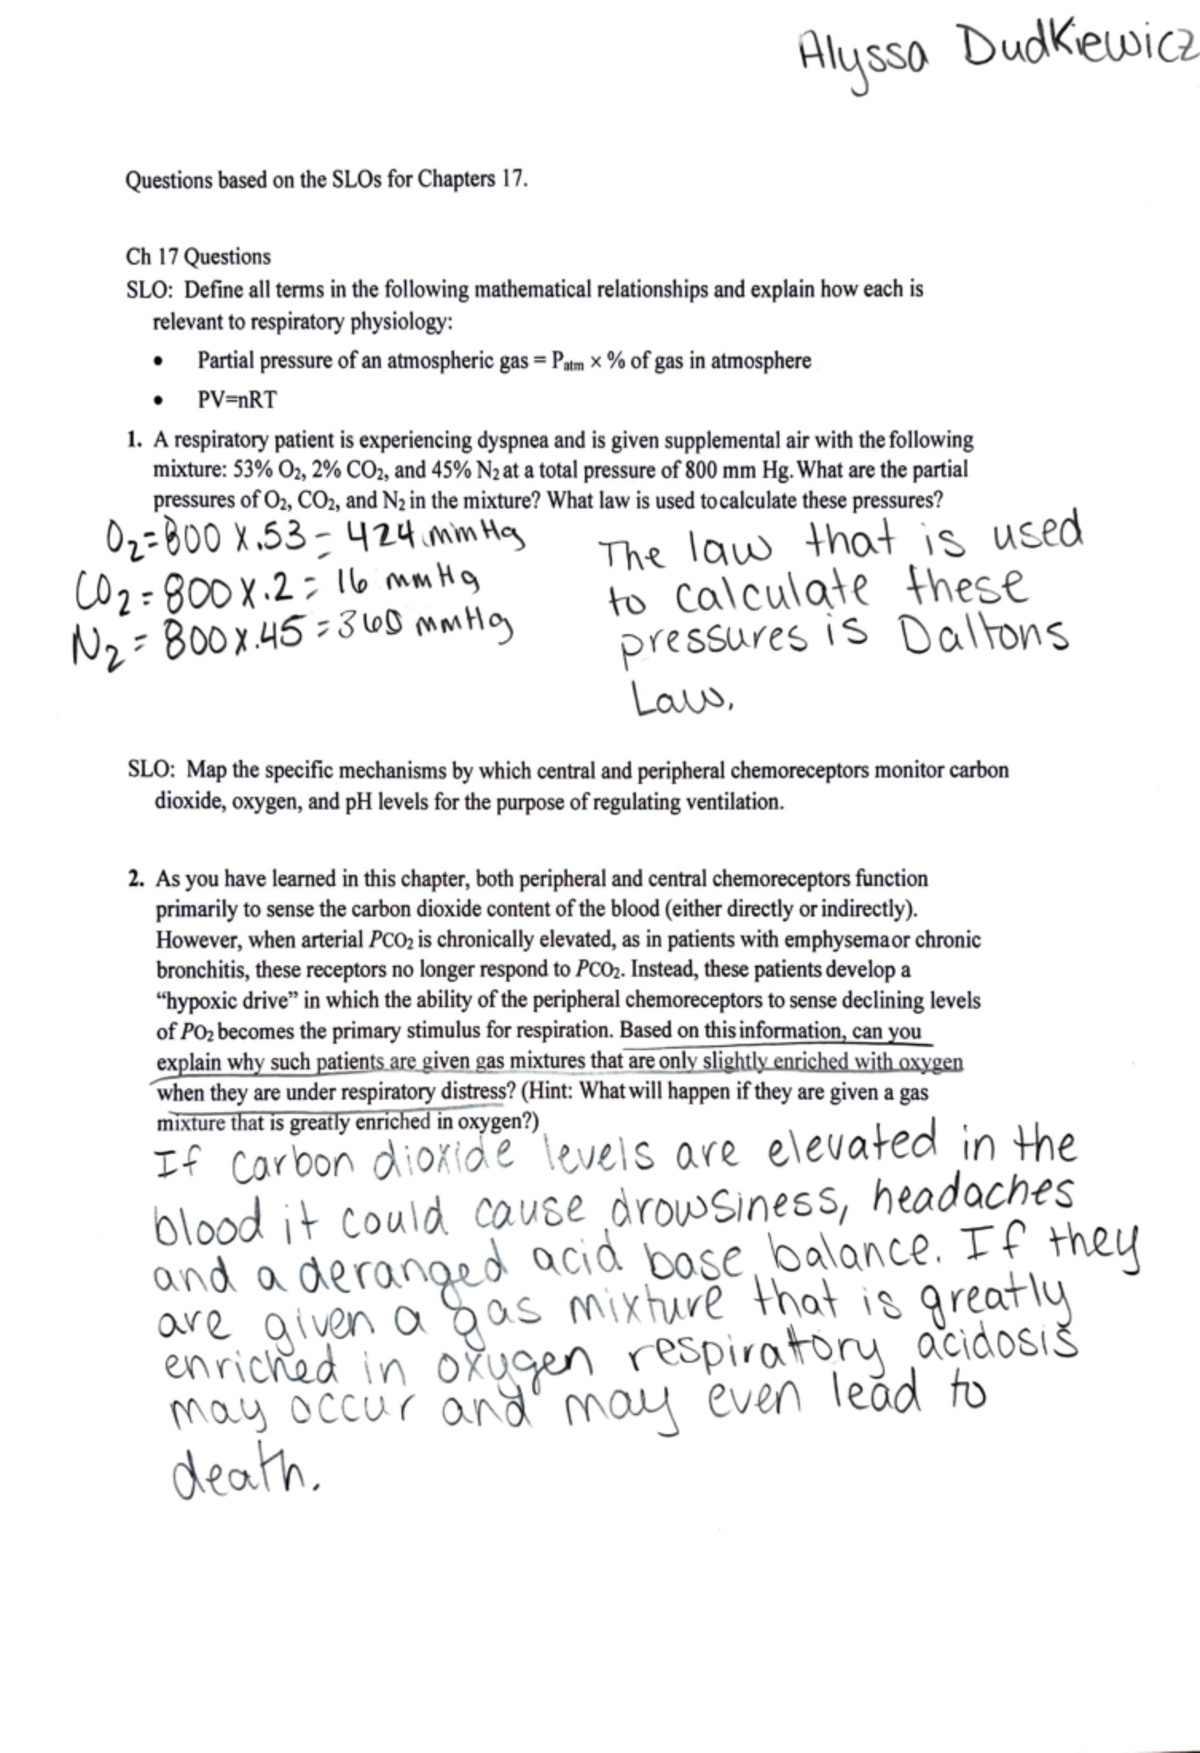 Alyssa Dudkiewicz
Questions based on the SLOs for Chapters 17.
Ch 17 Questions
SLO: Define all terms in the following mathematical relationships and explain how each is
relevant to respiratory physiology:
• Partial pressure of an atmospheric gas = Patm × % of gas in atmosphere
• PV=nRT
1. A respiratory patient is experiencing dyspnea and is given supplemental air with the following
mixture: 53% O₂, 2% CO₂, and 45% N₂ at a total pressure of 800 mm Hg. What are the partial
pressures of O₂, CO₂, and N₂ in the mixture? What law is used to calculate these pressures?
O₂=800 X.53= 424 mmHg
CO₂=800X.2= 16 mmHg
N₂=800x.45=360 mmHg
The law that is used
to calculate these
pressures is Daltons
Law.
SLO: Map the specific mechanisms by which central and peripheral chemoreceptors monitor carbon
dioxide, oxygen, and pH levels for the purpose of regulating ventilation.
2. As you have learned in this chapter, both peripheral and central chemoreceptors function
primarily to sense the carbon dioxide content of the blood (either directly or indirectly).
However, when arterial PCO₂ is chronically elevated, as in patients with emphysema or chronic
bronchitis, these receptors no longer respond to PCO₂. Instead, these patients develop a
“hypoxic drive” in which the ability of the peripheral chemoreceptors to sense declining levels
of PO₂ becomes the primary stimulus for respiration. Based on this information, can you
explain why such patients are given gas mixtures that are only slightly enriched with oxygen
when they are under respiratory distress? (Hint: What will happen if they are given a gas
mixture that is greatly enriched in oxygen?)
If carbon dioxide levels are elevated in the
blood it could cause drowsiness, headaches
and a deranged acid base balance. If they
are given a gas mixture that is greatly
enriched in oxygen respirattory acidosis
may occur and may even lead to
death.